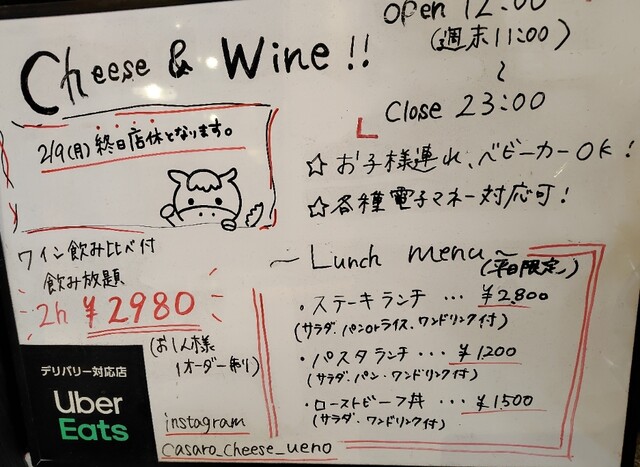 Cheese & Wine !!
open 12:00
(週末11:00)
～
Close 23:00
2/9(月) 終日店休となります。
☆ お子様連れ、ベビーカーOK!
☆ 各種電子マネー対応可!
ワイン飲み比べ付
飲み放題
2h ¥2980
(お1人様
1オーダー制り)
～ Lunch menu ～
(平日限定)
・ステーキランチ … ¥2,800
(サラダ・パンorライス、ワンドリンク付)
・パスタランチ … ¥1200
(サラダ・パン・ワンドリンク付)
・ローストビーフ丼 … ¥1,500
(サラダ・ワンドリンク付)
デリバリー対応店
Uber
Eats
instagram
casaro_cheese_ueno